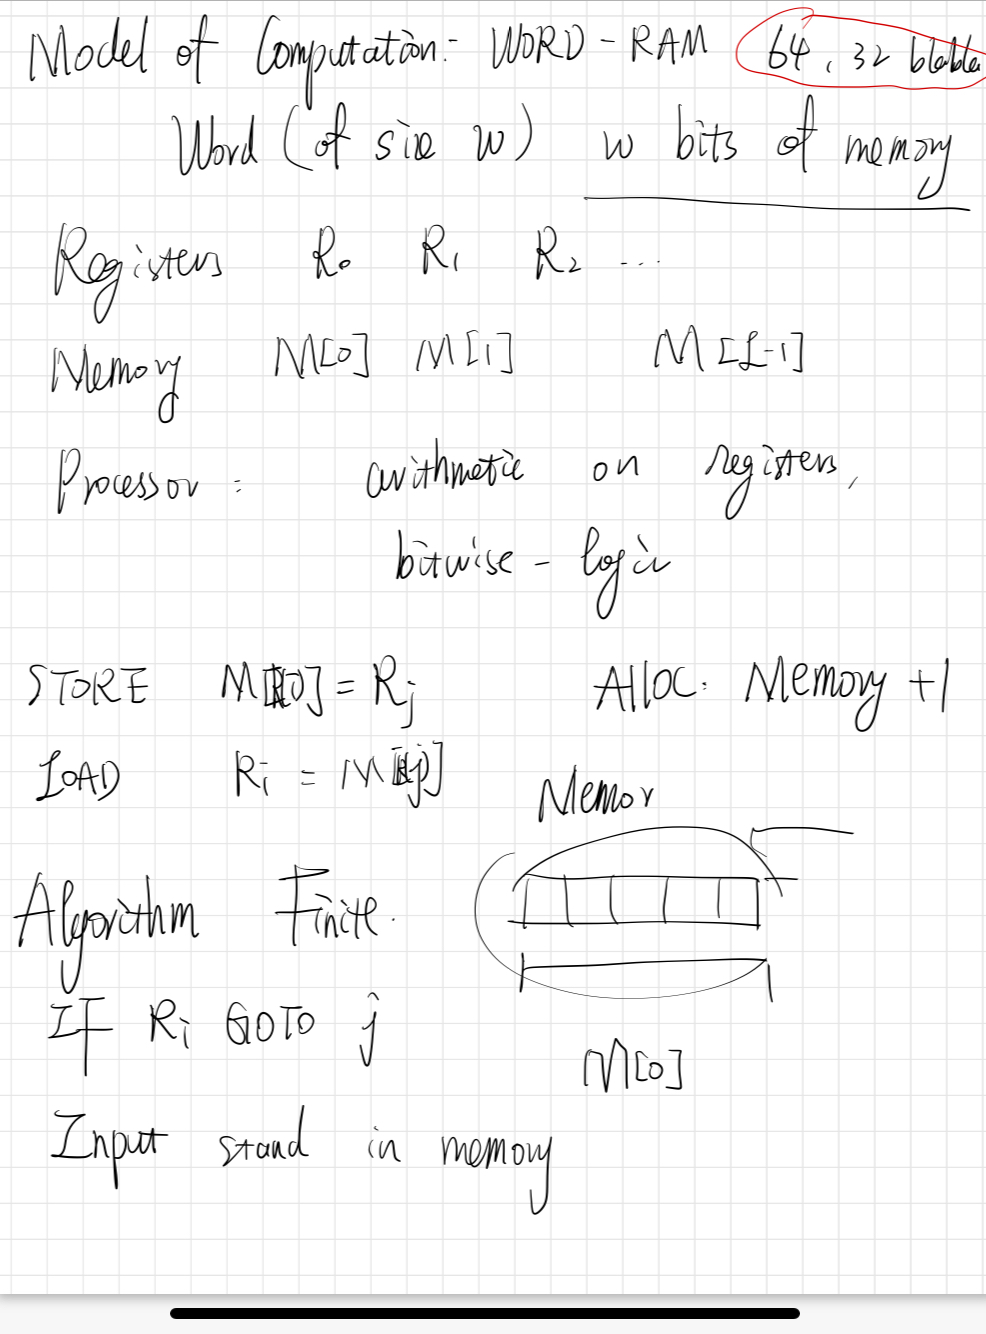 Model of Computation: WORD-RAM 64, 32 blabla
Word (of size w) w bits of memory
Registers R0 R1 R2 ...
Memory M[0] M[1] M[S-1]
Processor: arithmetic on registers,
bitwise - logic
STORE = Rj Alloc: Memory +1
LOAD Ri =
Memor
Algorithm Finite.
IF Ri GOTO j
M[0]
Input stand in memory